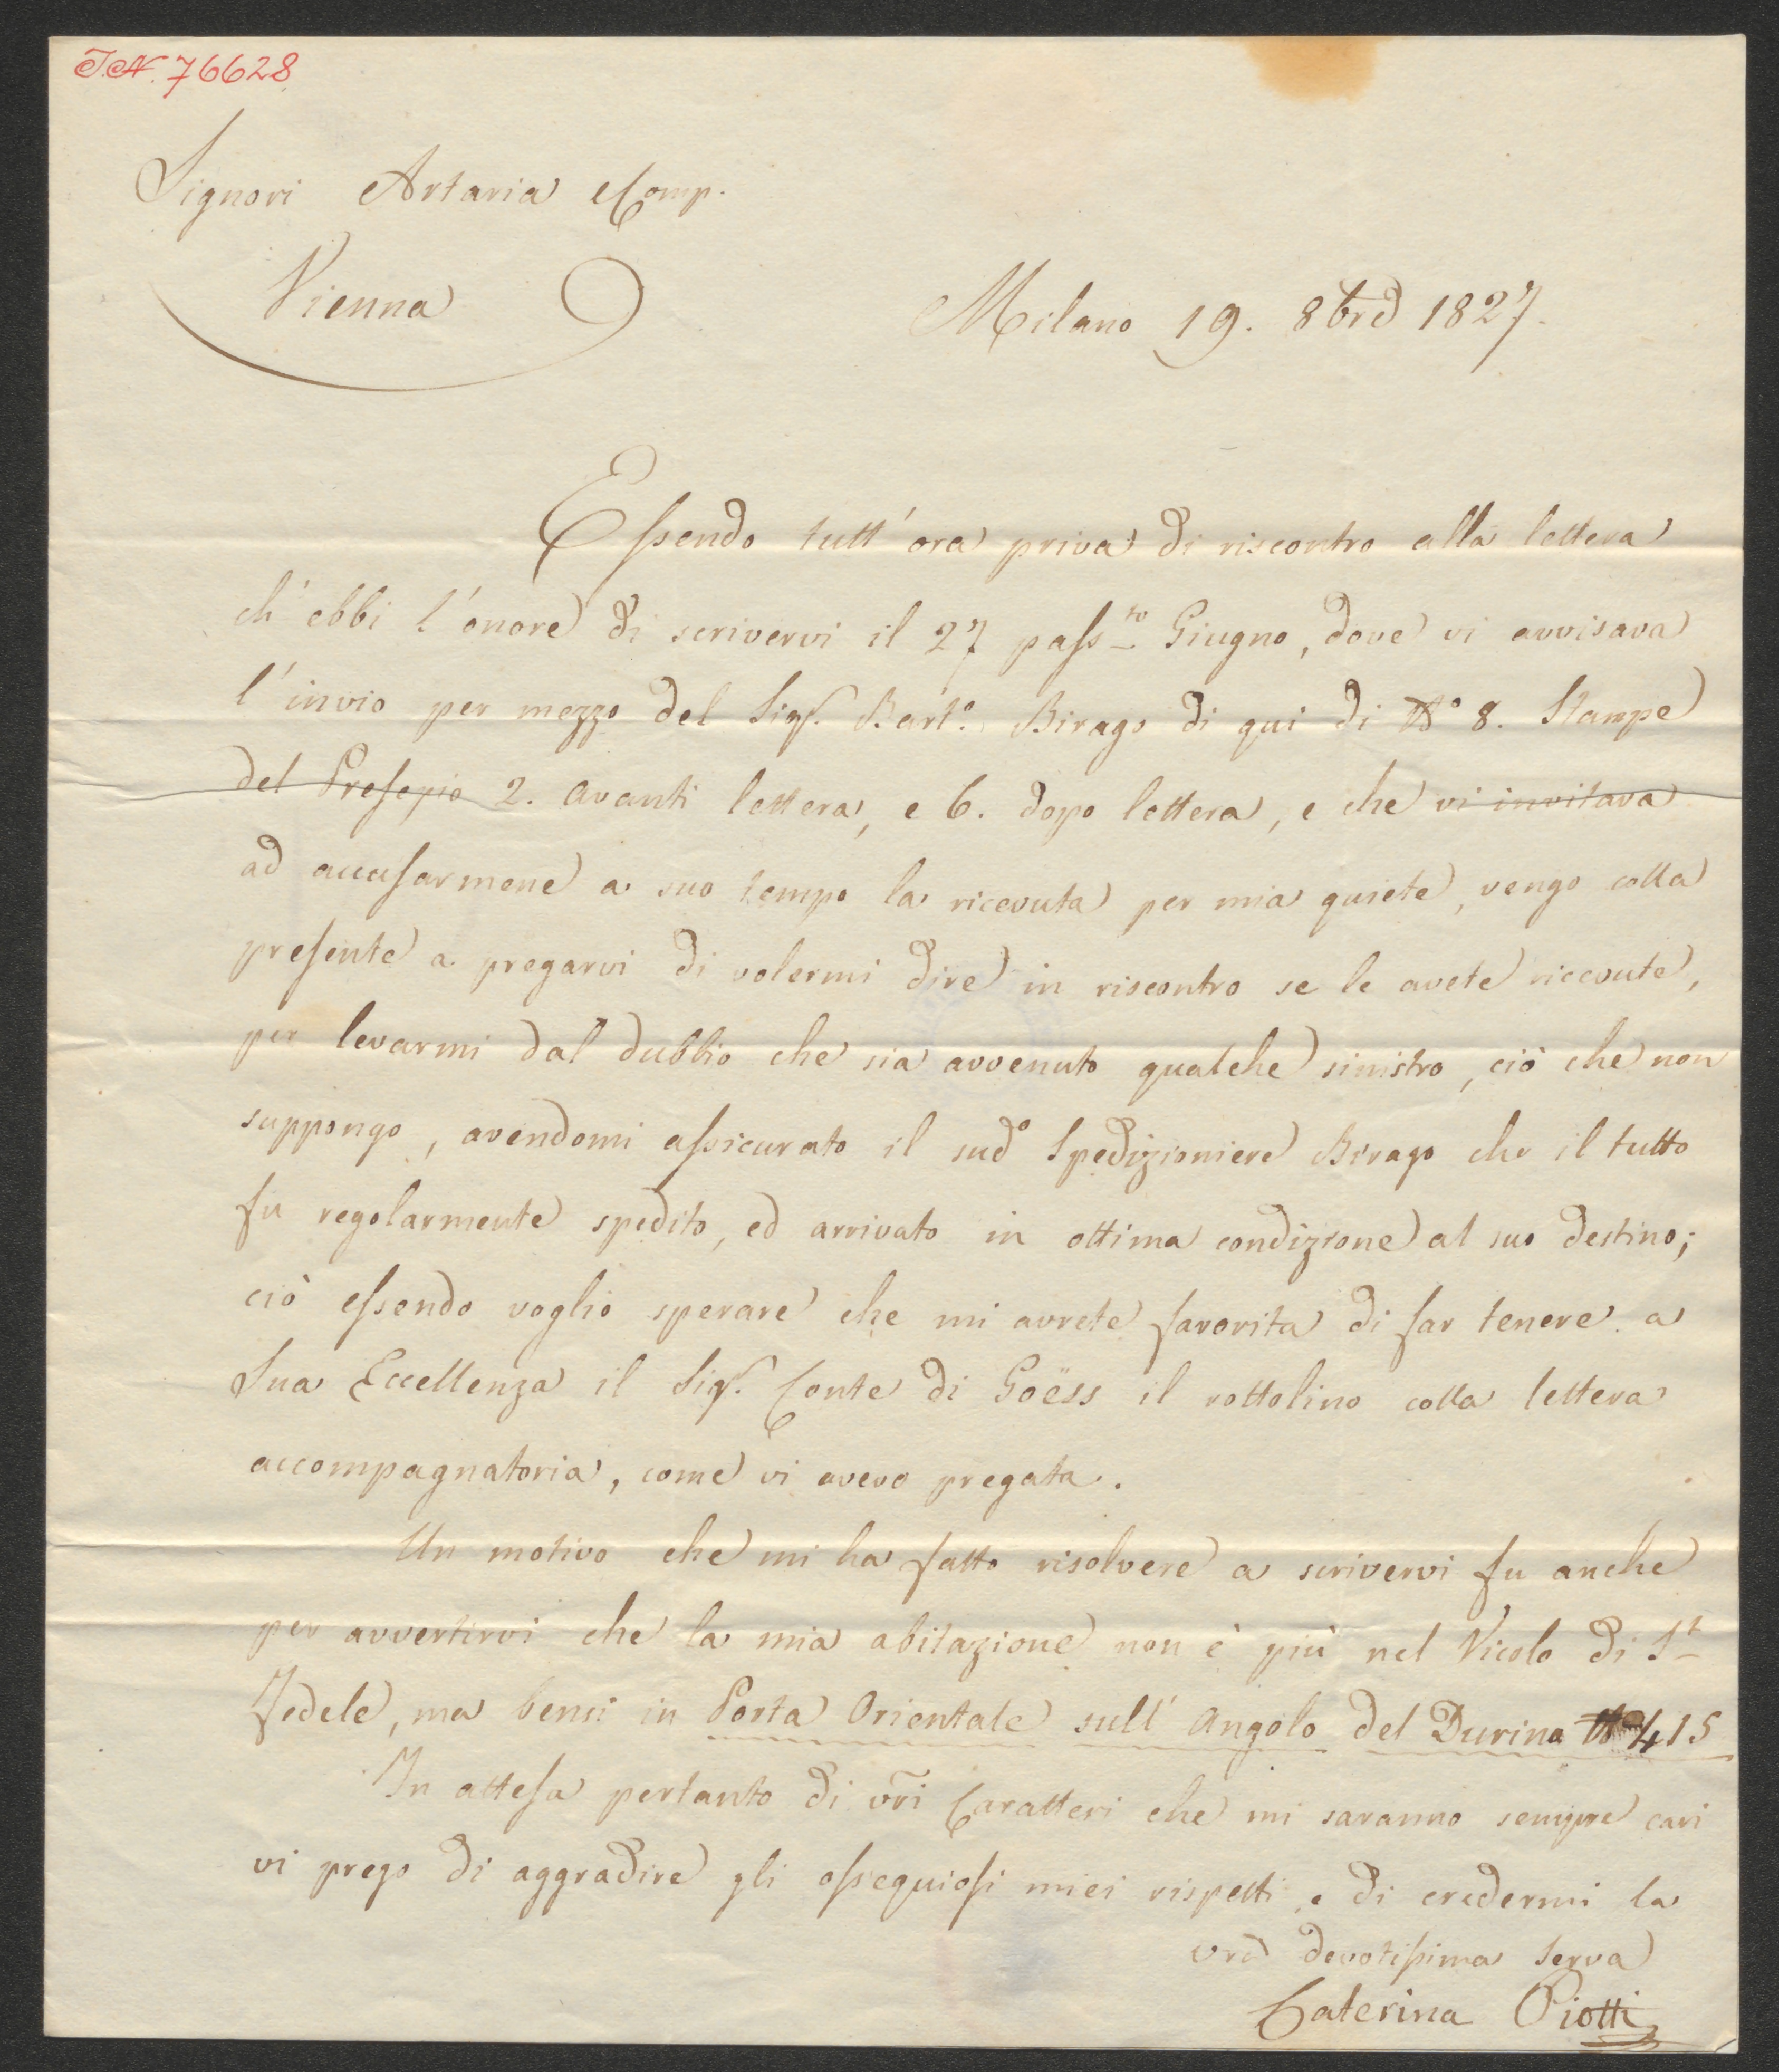 I.N. 76628
Signori Artaria e Comp.
Vienna
Milano 19. 8bre 1827.
Eſsendo tutt'ora priva di riscontro alla lettera
ch'ebbi l'onore di scrivervi il 27 paſsto Giugno, dove vi avvisava
l'invio per mezzo del Sigr. Barto. Birago di qui di No 8. Stampe
del Preſepio 2. avanti lettera, e 6. dopo lettera, e che vi invitava
ad accuſarmene a suo tempo la ricevuta per mia quiete, vengo colla
preſente a pregarvi di volermi dire in riscontro se le avete ricevute,
per levarmi dal dubbio che sia avvenuto qualche sinistro, ciò che non
suppongo, avendomi aſsicurato il sudo Spedizioniere Birago che il tutto
fu regolarmente spedito, ed arrivato in ottima condizione al suo destino;
ciò eſsendo voglio sperare che mi avrete favorita di far tenere a
Sua Eccellenza il Sigr. Conte di Goëss il rottolino colla lettera
accompagnatoria, come vi avevo pregata.
Un motivo che mi ha fatto risolvere a scrivervi fu anche
per avvertirvi che la mia abitazione non è più nel Vicolo di St
Fedele, ma bensi in Porta Orientale sull'angolo del Durino No 415
In atteſa pertanto di vri Caratteri che mi saranno sempre cari
vi prego di aggradire gli oſsequioſi miei rispetti, e di credermi la
vra devotiſsima serva
Caterina Piotti